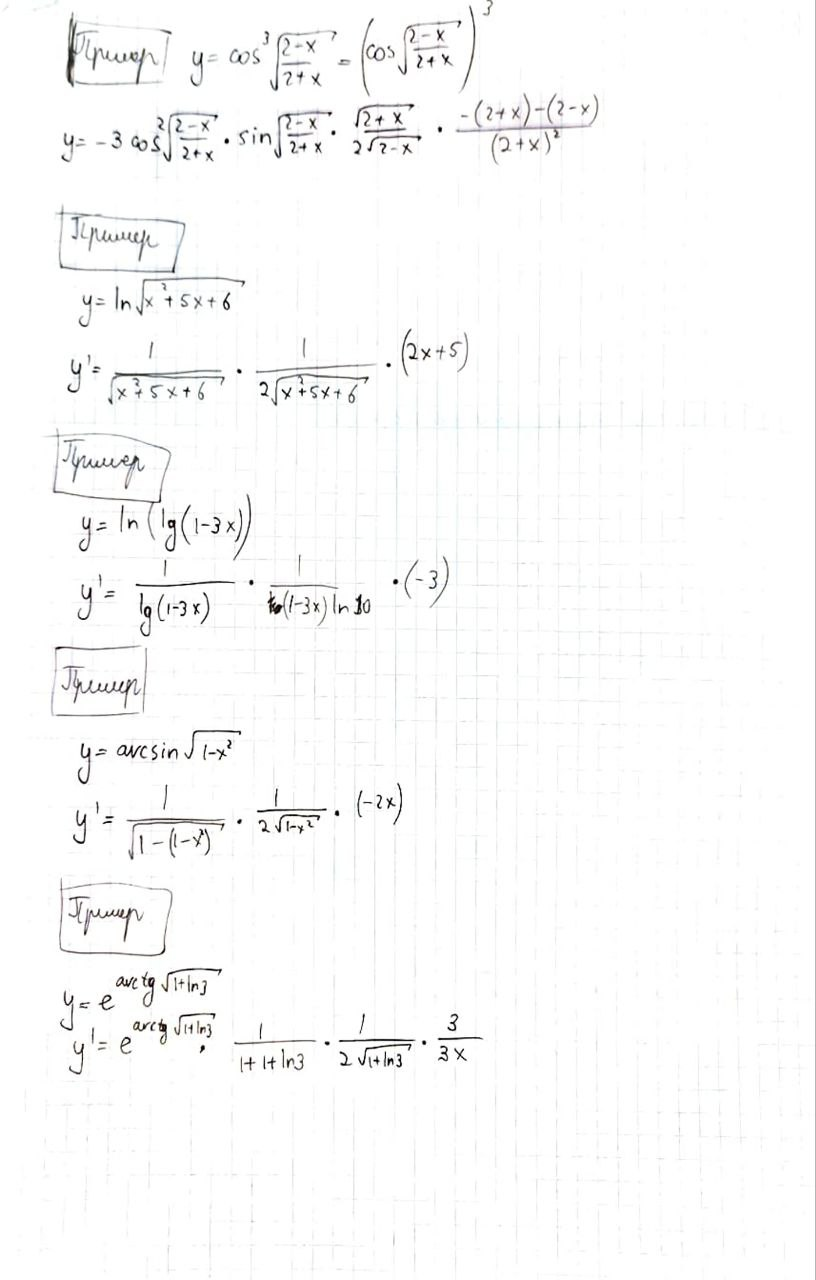 Пример y = cos³√((2-x)/(2+x)) = (cos√((2-x)/(2+x)))³
y = -3 cos²√((2-x)/(2+x)) · sin√((2-x)/(2+x)) · √(2+x)/(2√(2-x)) · (-(2+x)-(2-x))/(2+x)²
Пример
y = ln√(x²+5x+6)
y' = 1/√(x²+5x+6) · 1/(2√(x²+5x+6)) · (2x+5)
Пример
y = ln(lg(1-3x))
y' = 1/lg(1-3x) · 1/((1-3x) ln10) · (-3)
Пример
y = arcsin√(1-x²)
y' = 1/√(1-(1-x²)) · 1/(2√(1-x²)) · (-2x)
Пример
y = e^(arctg√(1+ln3))
y' = e^(arctg√(1+ln3)) · 1/(1+1+ln3) · 1/(2√(1+ln3)) · 3/(3x)